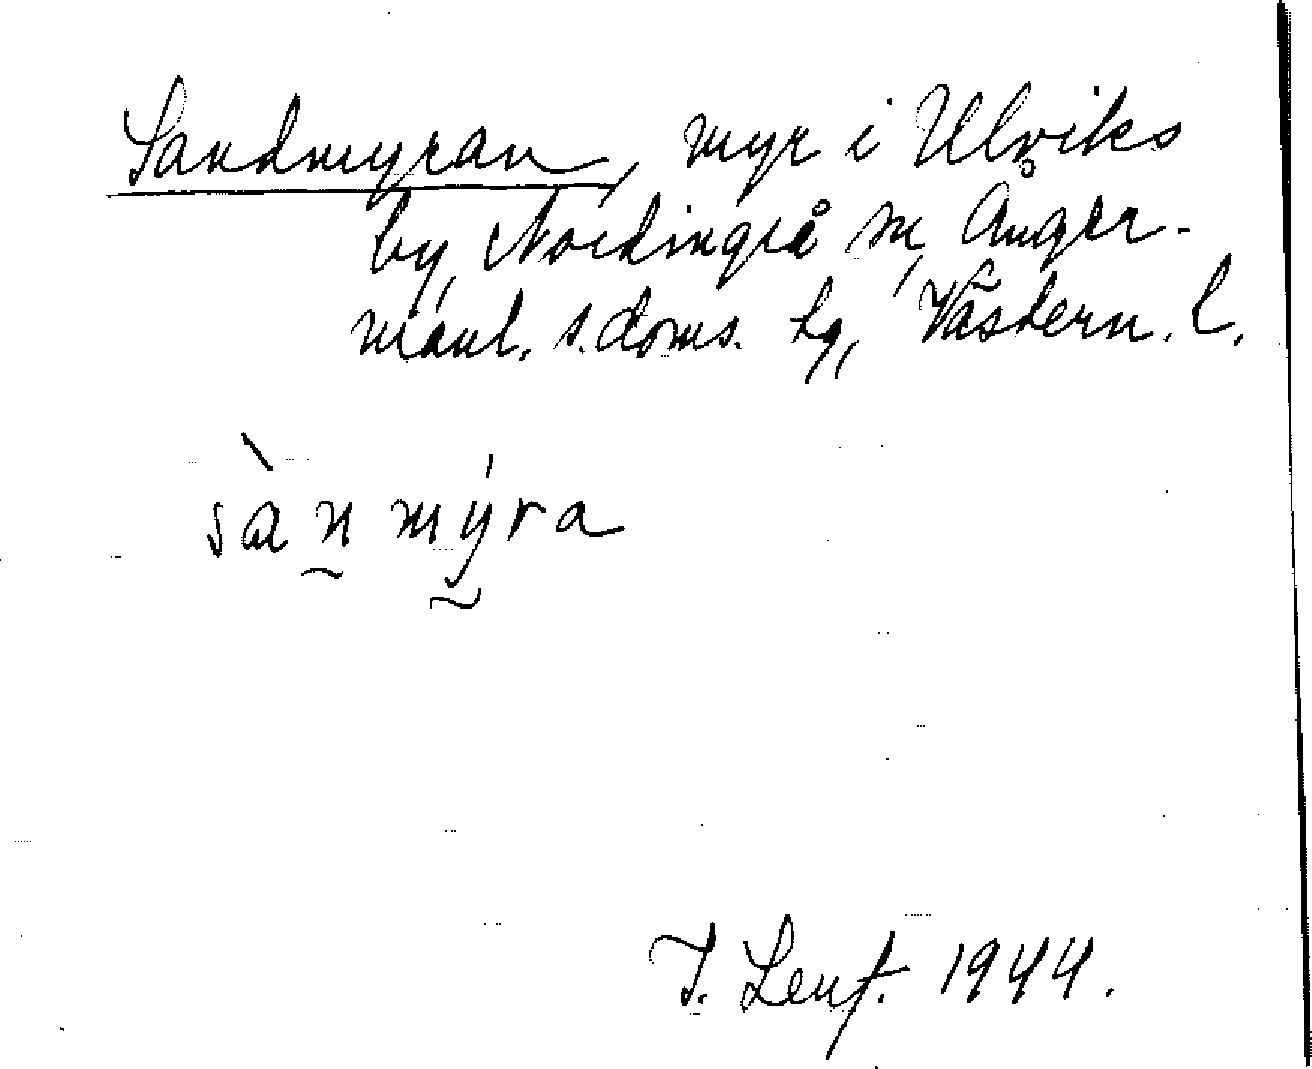 Sandmyran, myr i Ulviks
by, Nordingrå sn, Ånger-
manl. s. doms. hg, Västern. l.
sànmýra
T. Leuf. 1944.